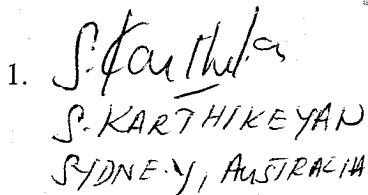 1. S. Karthik
S. KARTHIKEYAN
SYDNEY, AUSTRALIA